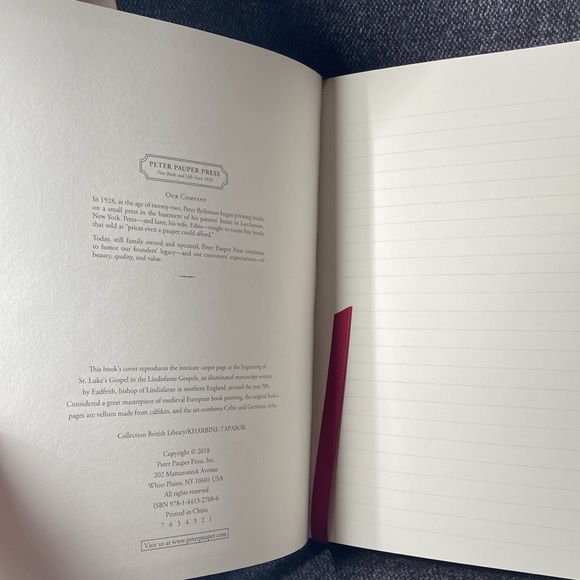 PETER PAUPER PRESS
Fine Books and Gifts Since 1928
OUR COMPANY
In 1928, at the age of twenty-two, Peter Beilenson began printing books
on a small press in the basement of his parents' home in Larchmont,
New York. Peter—and later, his wife, Edna—sought to create fine books
that sold at "prices even a pauper could afford."
Today, still family owned and operated, Peter Pauper Press continues
to honor our founders' legacy—and our customers' expectations—of
beauty, quality, and value.
This book's cover reproduces the intricate carpet page at the beginning of
St. Luke's Gospel in the Lindisfarne Gospels, an illuminated manuscript written
by Eadfrith, bishop of Lindisfarne in northern England, around the year 700.
Considered a great masterpiece of medieval European book painting, the original book's
pages are vellum made from calfskin, and the art combines Celtic and Germanic styles.
Collection British Library/KHARBINE-TAPABOR
Copyright © 2018
Peter Pauper Press, Inc.
202 Mamaroneck Avenue
White Plains, NY 10601 USA
All rights reserved
ISBN 978-1-4413-2708-6
Printed in China
7 6 5 4 3 2 1
Visit us at www.peterpauper.com